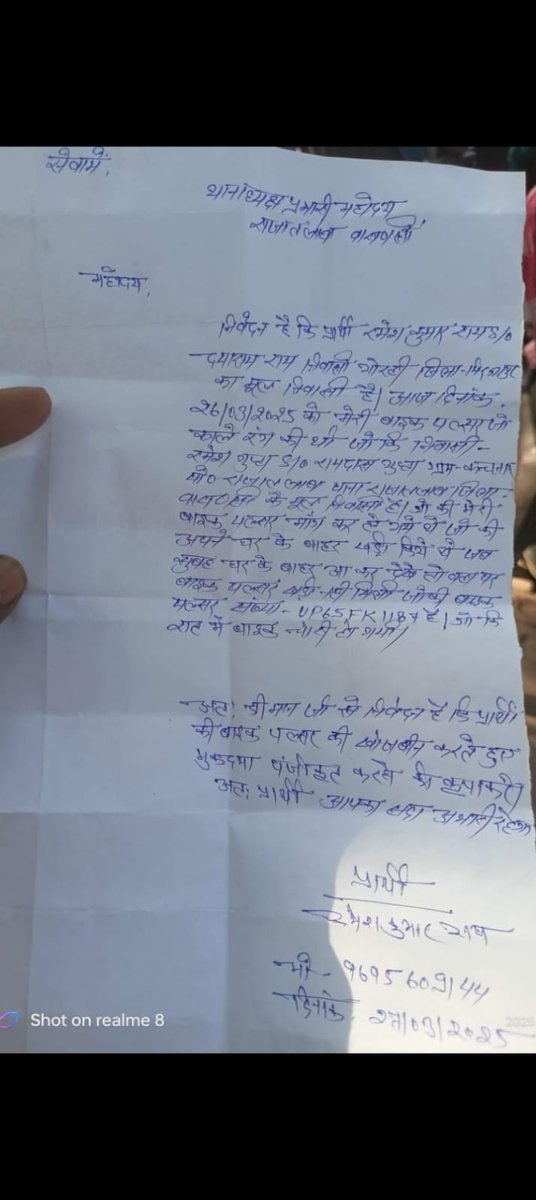 सेवामें,
थानाध्यक्ष प्रभारी महोदय
राजातलाब वाराणसी
महोदय,
निवेदन है कि प्रार्थी रमेश कुमार राम S/o
राम निवासी जिला-
का मूल निवासी है। आज दिनांक
26/03/2025 को मेरी बाइक पल्सर जो
काले रंग की थी जो कि निवासी-
रमेश गुप्ता S/o रामदास गुप्ता ग्राम-कचनार
पो० राजातलाब थाना राजातलाब जिला-
के मूल निवासी है। जो की मेरी
बाइक पल्सर मांग कर ले गये थे जो की
अपने घर के बाहर खड़ी किये थे जब
सुबह घर के बाहर आ कर देखे तो वहा पर
बाइक पल्सर नही मिली जोकी बाइक
पल्सर संख्या - UP65FK1187 है। जो कि
रात में बाइक चोरी हो गयी।
अतः श्रीमान जी से निवेदन है कि प्रार्थी
की बाइक पल्सर की खोजबीन करते हुए
मुकदमा पंजीकृत करने की कृपा करें।
अतः प्रार्थी आपका सदा आभारी रहेगा
प्रार्थी
रमेश कुमार राम
मो - 9695609144
दिनांक - 27/03/2025
Shot on realme 8